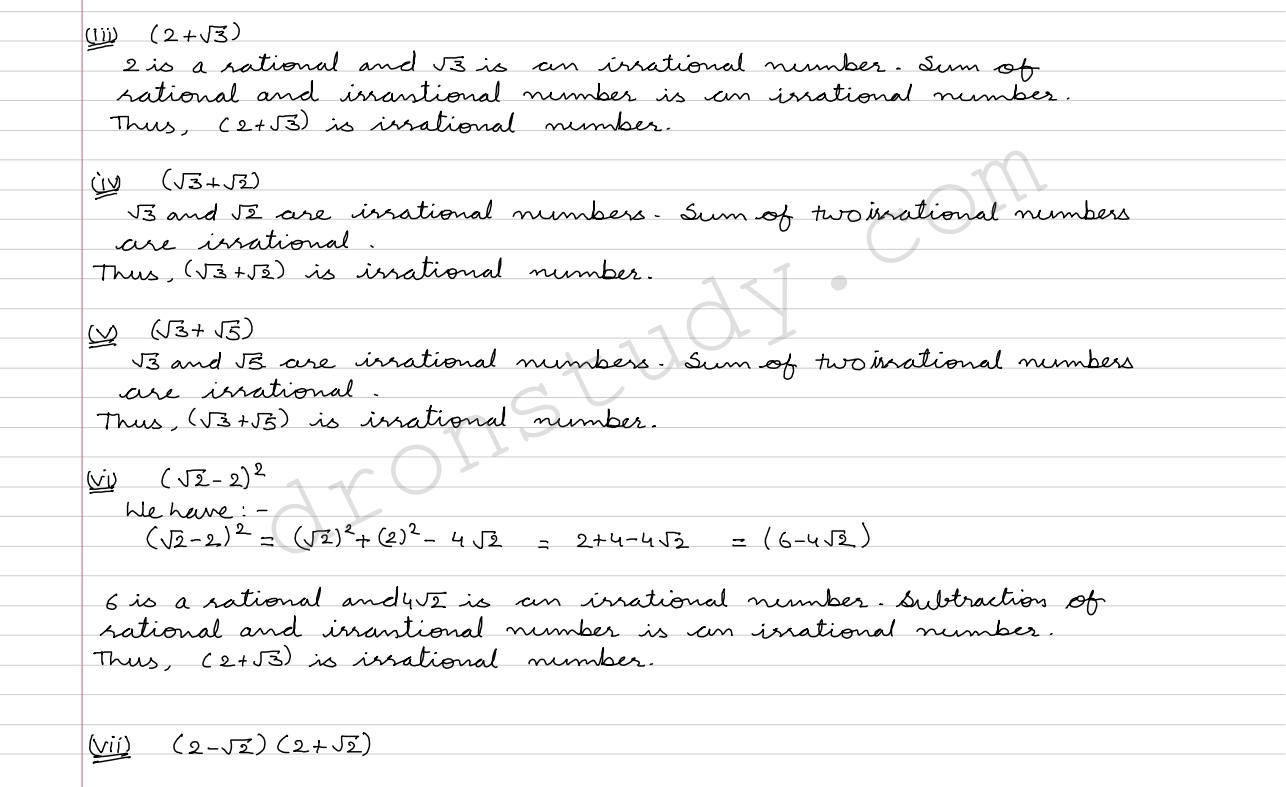 (iii) (2+√3)
2 is a rational and √3 is an irrational number. Sum of
rational and irrantional number is an irrational number.
Thus, (2+√3) is irrational number.
(iv) (√3+√2)
√3 and √2 are irrational numbers. Sum of two irrational numbers
are irrational.
Thus, (√3+√2) is irrational number.
(v) (√3+√5)
√3 and √5 are irrational numbers. Sum of two irrational numbers
are irrational.
Thus, (√3+√5) is irrational number.
(vi) (√2-2)²
We have :-
(√2-2)² = (√2)²+(2)²- 4√2 = 2+4-4√2 = (6-4√2)
6 is a rational and 4√2 is an irrational number. Subtraction of
rational and irrantional number is an irrational number.
Thus, (2+√3) is irrational number.
(vii) (2-√2)(2+√2)
dronstudy.com